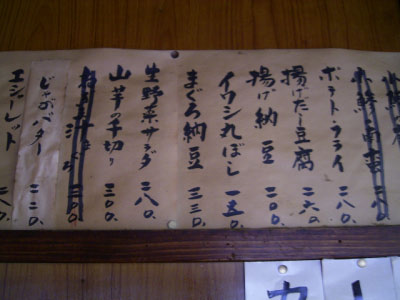 ポテト・フライ 二八〇.
揚げだし豆腐 二六〇
揚げ納豆 二八〇.
イワシ丸ぼし 一五〇.
まぐろ納豆 三三〇.
生野菜サラダ 二八〇.
山芋の千切り 三〇〇.
三〇〇.
じゃがバター 二二〇.
エシャレット 二八〇.
カ